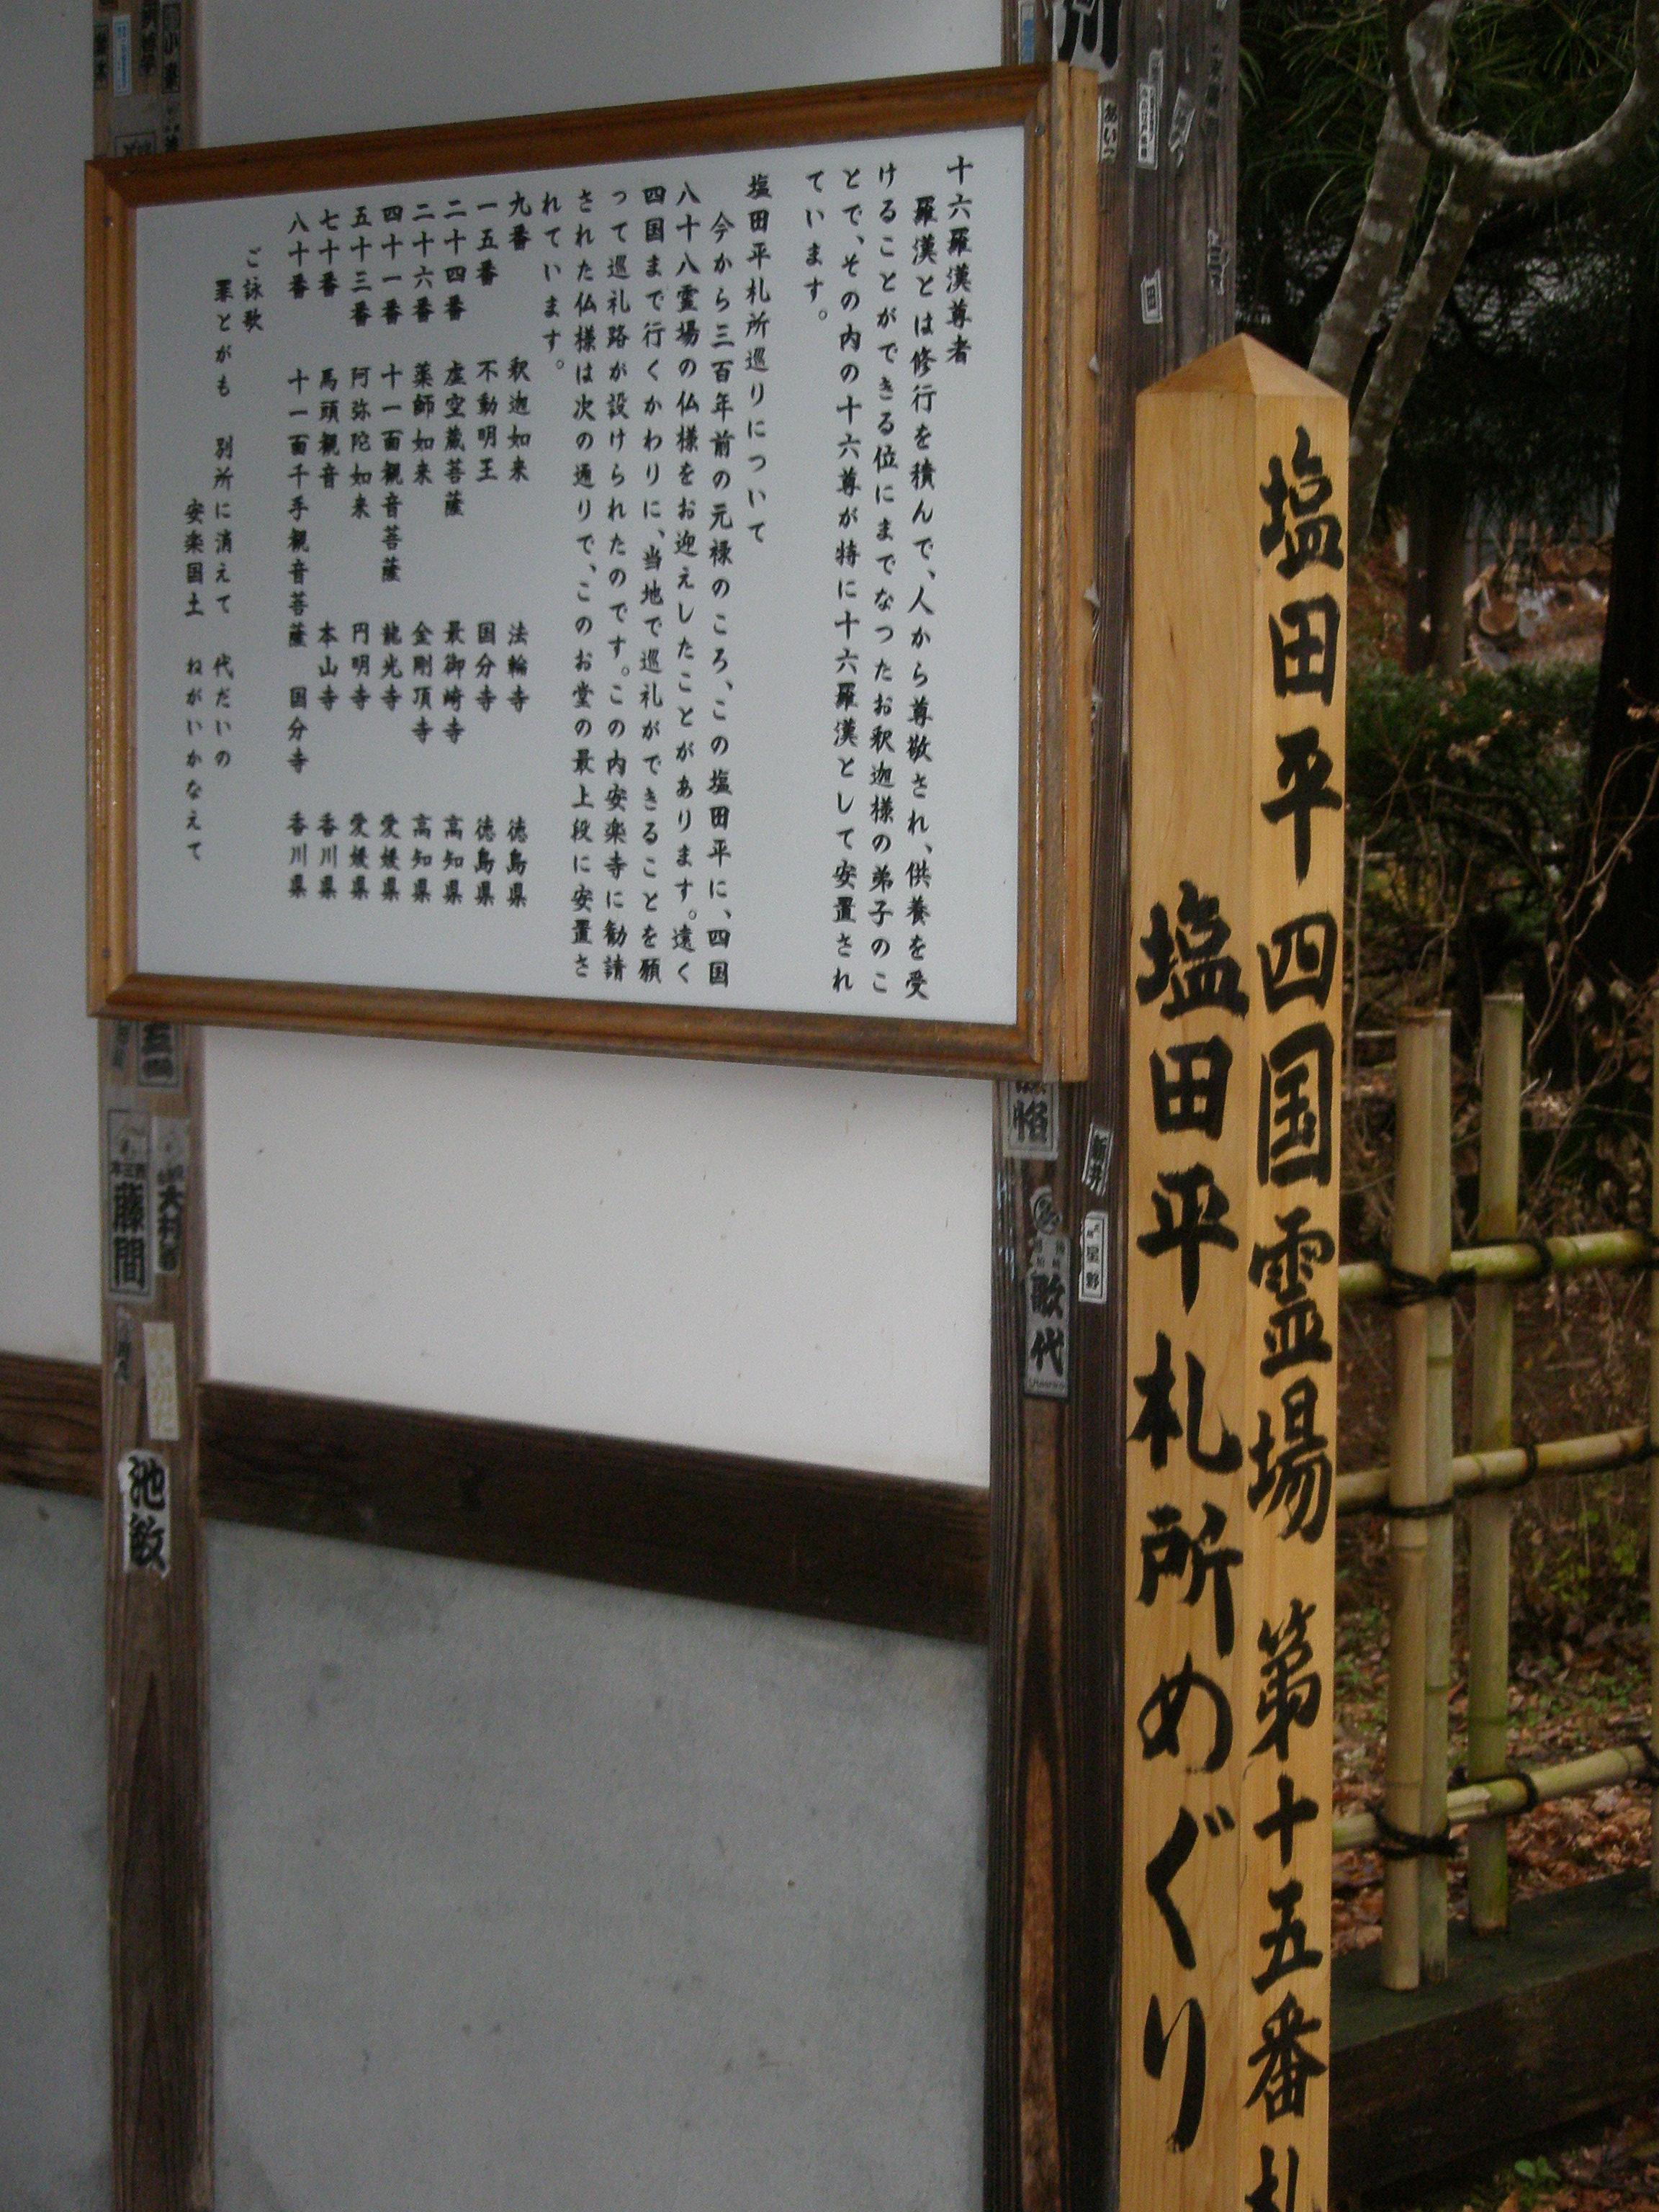 十六羅漢尊者
羅漢とは修行を積んで、人から尊敬され、供養を受
けることができる位にまでなったお釈迦様の弟子のこ
とで、その内の十六尊が特に十六羅漢として安置され
ています。
塩田平札所巡りについて
今から三百年前の元禄のころ、この塩田平に、四国
八十八霊場の仏様をお迎えしたことがあります。遠く
四国まで行くかわりに、当地で巡礼ができることを願
って巡礼路が設けられたのです。この内安楽寺に勧請
された仏様は次の通りで、このお堂の最上段に安置さ
れています。
九番 釈迦如来 法輪寺 徳島県
一五番 不動明王 国分寺 徳島県
二十四番 虚空蔵菩薩 最御崎寺 高知県
二十六番 薬師如来 金剛頂寺 高知県
四十一番 十一面観音菩薩 龍光寺 愛媛県
五十三番 阿弥陀如来 円明寺 愛媛県
七十番 馬頭観音 本山寺 香川県
八十番 十一面千手観音菩薩 国分寺 香川県
ご詠歌
罪とがも 別所に消えて 代だいの
安楽国土 ねがいかなえて
塩田平四国霊場 第十五番札
塩田平札所めぐり
藤間
大井
池
歌代
新井
星野